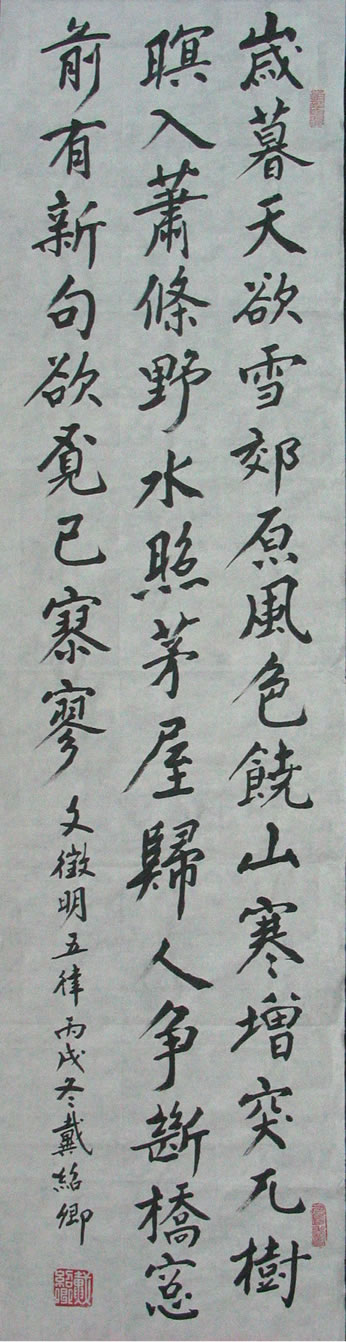 歲暮天欲雪郊原風色饒山寒增突兀樹
暝入蕭條野水照茅屋歸人争斷橋窓
前有新句欲覓已寮寥
文徵明五律丙戌冬戴紹卿